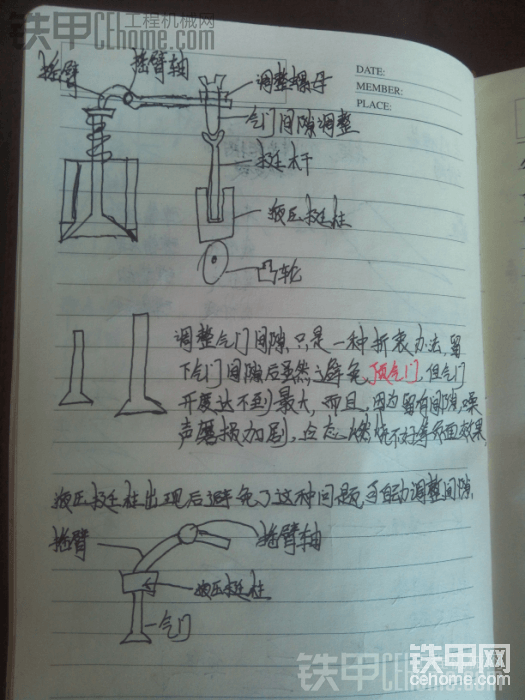 铁甲 工程机械网
CEhome.com
DATE:
MEMBER:
PLACE:
摇臂
摇臂轴
调整螺母
气门间隙调整
挺杆
液压挺柱
凸轮
调整气门间隙,只是一种折衷办法,留
下气门间隙后虽然避免顶气门,但气门
开度达不到最大,而且,因为留有间隙,噪
声磨损加剧,点态燃烧不好等负面效果
液压挺柱出现后避免了这种问题,可自动调整间隙.
摇臂
摇臂轴
液压挺柱
气门
铁甲 工程机械网
CEhome.com
铁甲网
cehome.com